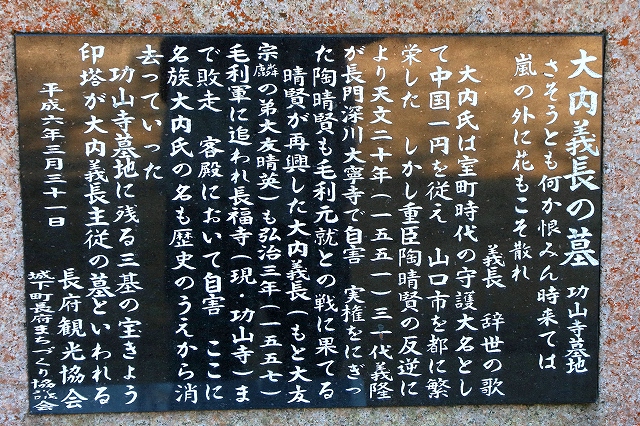 大内義長の墓 功山寺墓地
さそうとも何か恨みん時来ては
嵐の外に花もこそ散れ
義長 辞世の歌
大内氏は室町時代の守護大名とし
て中国一円を従え 山口市を都に繁
栄した しかし重臣陶晴賢の反逆に
より天文二十年(一五五一)三一代義隆
が長門深川大寧寺で自害 実権をにぎっ
た陶晴賢も毛利元就との戦に果てる
晴賢が再興した大内義長(もと大友
宗麟の弟大友晴英)も弘治三年(一五五七)
毛利軍に追われ長福寺(現・功山寺)ま
で敗走 客殿において自害 ここに
名族大内氏の名も歴史のうえから消
去っていった
功山寺墓地に残る三基の宝きょう
印塔が大内義長主従の墓といわれる
長府観光協会
平成六年三月三十一日
城下町長府まちづくり協議会